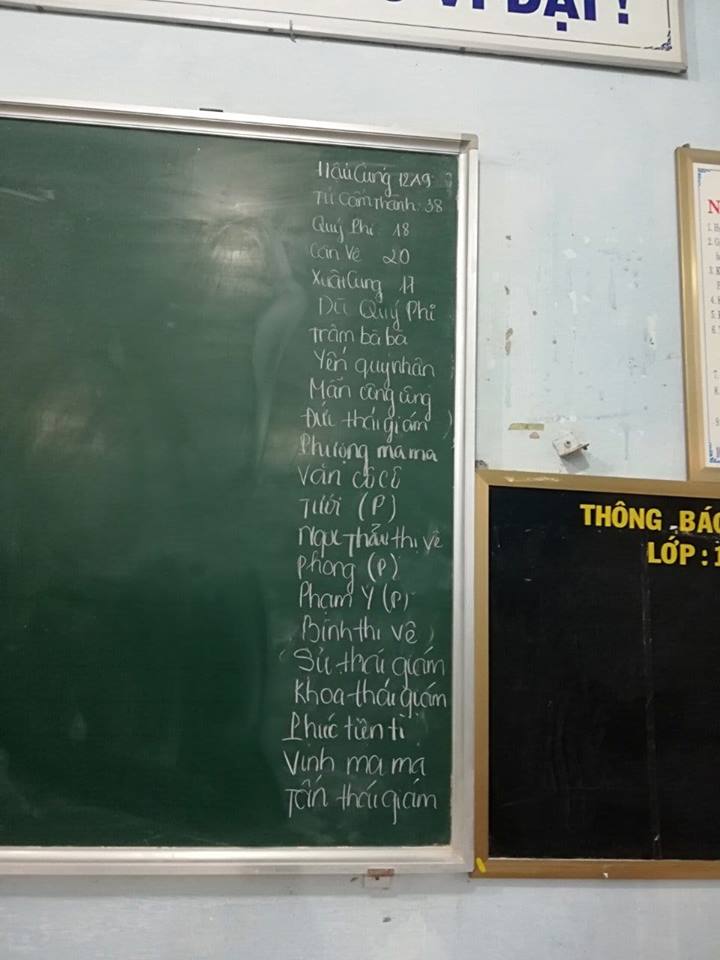 VĨ ĐẠI !
Hậu Cung 12A9
Tử Cấm Thành: 38
Quý Phi 18
Cấn Vệ 20
Xuân Cung 17
Dũ Quý Phi
Trâm bà bà
Yến quý nhân
Mẫn công công
Đức thái giám
Phượng ma ma
Vân cô cô
Tưới (P)
Ngọc Thẩu thị vệ
Phong (P)
Phạm Ý (P)
Bình thị vệ
Sử thái giám
Khoa thái giám
Phúc tiên tỉ
Vinh ma ma
Tấn thái giám
THÔNG BÁO
LỚP : 1
N